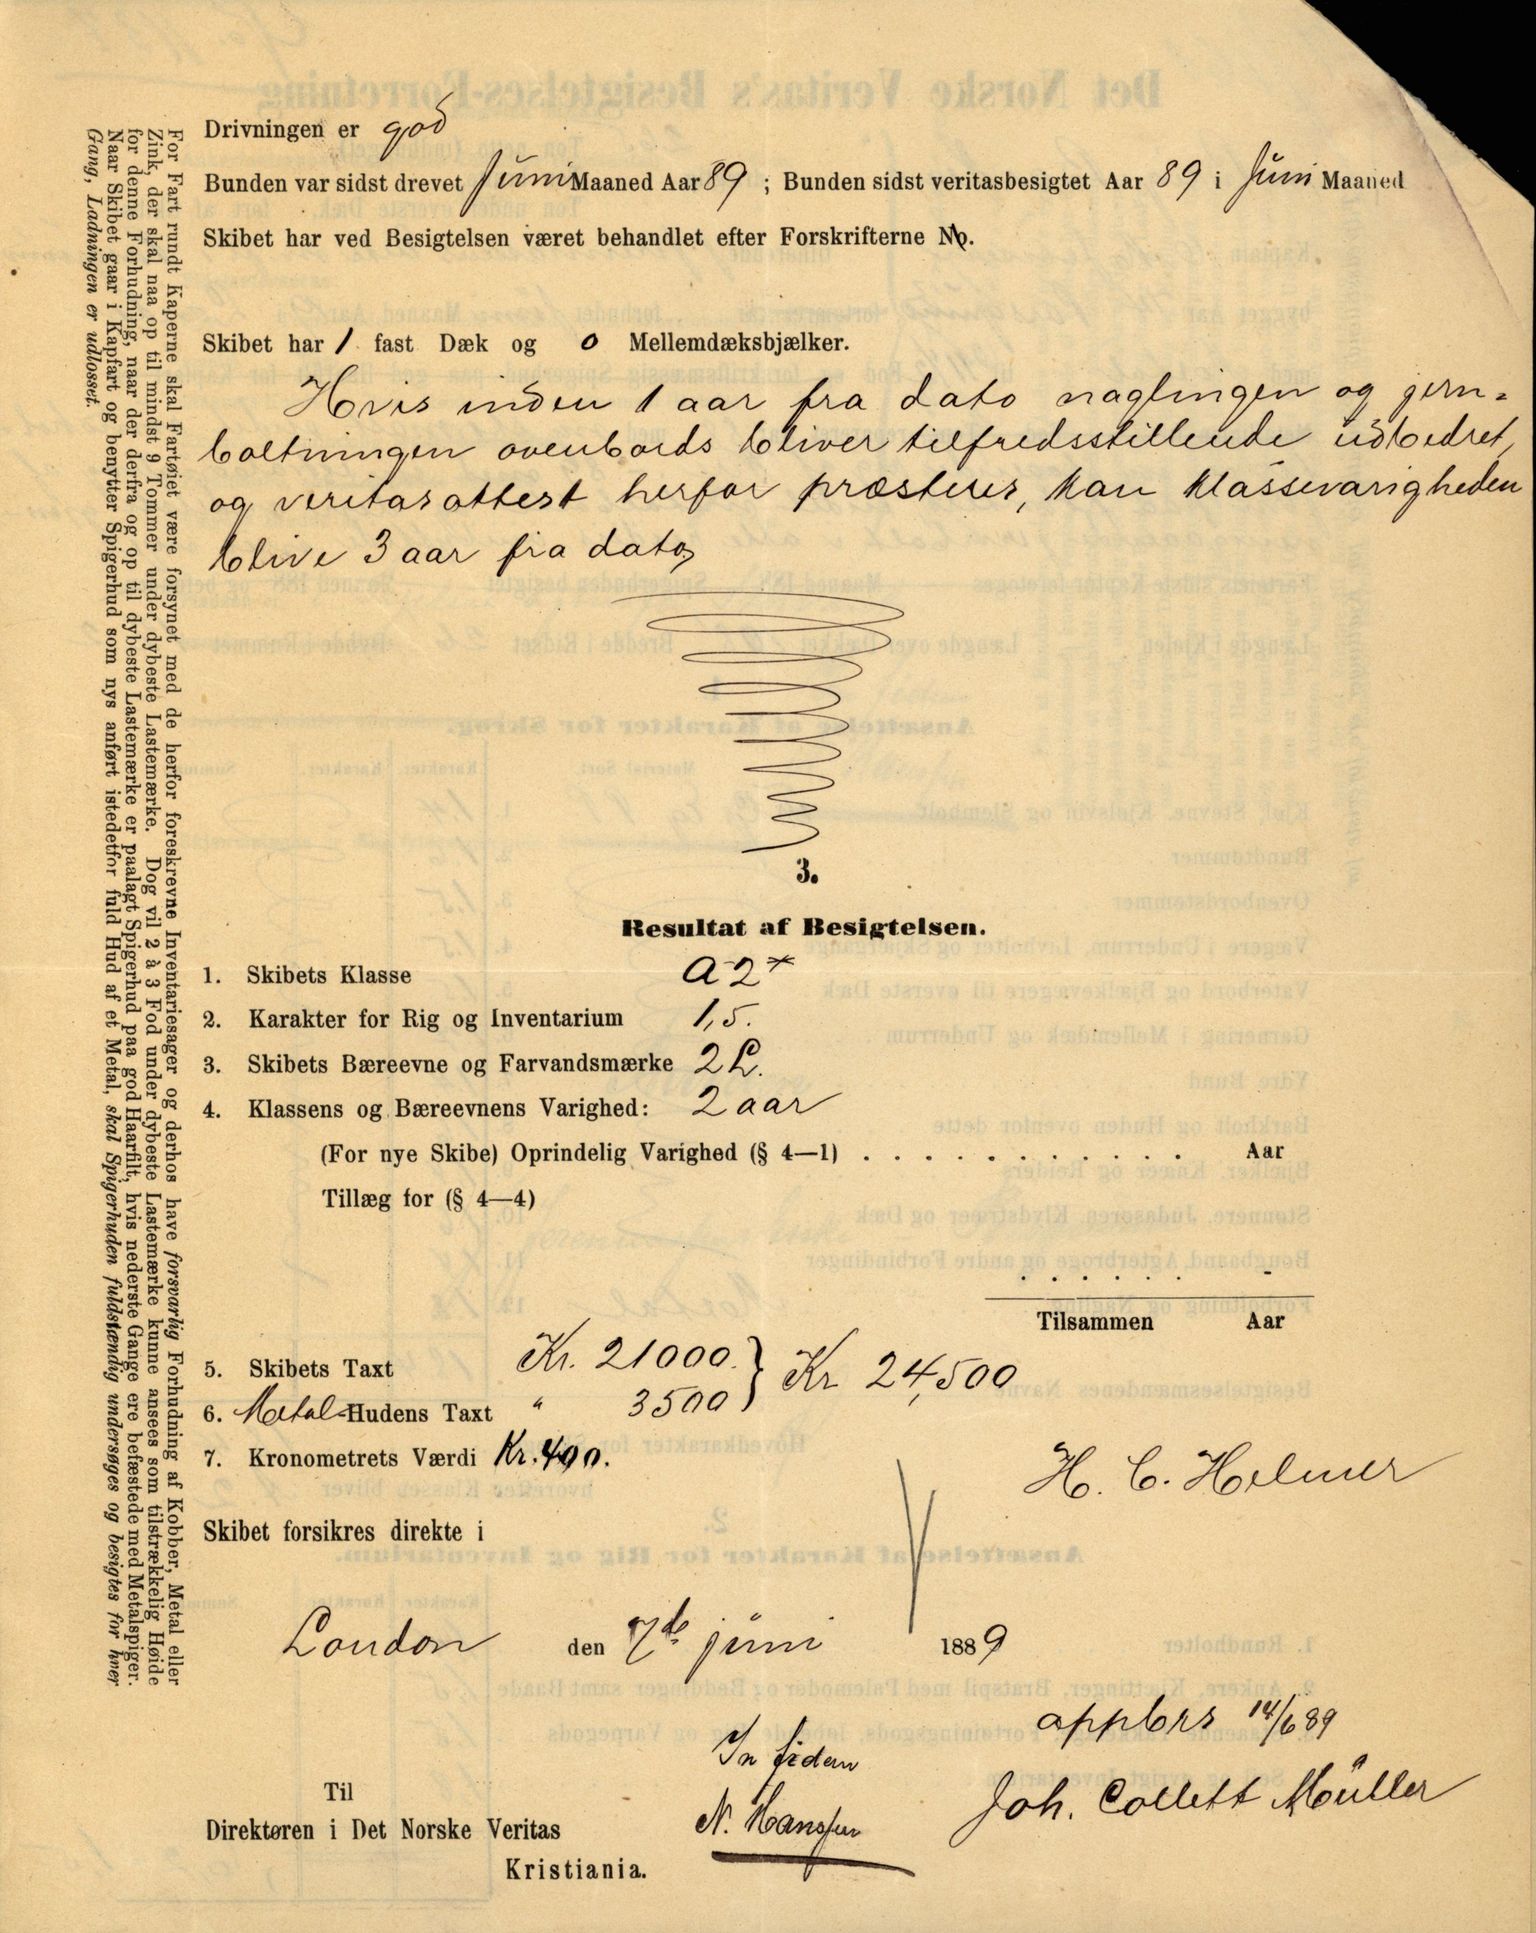 Drivningen er god
Bunden var sidst drevet Juni Maaned Aar 89 ; Bunden sidst veritasbesigtet Aar 89 i Juni Maaned
Skibet har ved Besigtelsen været behandlet efter Forskrifterne No.
Skibet har 1 fast Dæk og 0 Mellemdæksbjælker.
Hvis inden 1 aar fra dato naglingen og jern=
boltningen ovenbords bliver tilfredsstillende udbedret,
og veritasattest herfor præsteres, kan klassevarigheden
blive 3 aar fra dato,
3.
Resultat af Besigtelsen.
1. Skibets Klasse A 2*
2. Karakter for Rig og Inventarium 1,5.
3. Skibets Bæreevne og Farvandsmærke 2 L.
4. Klassens og Bæreevnens Varighed: 2 aar
(For nye Skibe) Oprindelig Varighed (§ 4—1) . . . . . . . . . . . . Aar
Tillæg for (§ 4—4)
. . . . . . -
Tilsammen Aar
5. Skibets Taxt Kr. 21000. } Kr 24,500
6. Metal-Hudens Taxt " 3500
7. Kronometrets Værdi Kr. 400.
H. C. Helmer
Skibet forsikres direkte i
London den 7de juni 1889
appbrs 14/6 89
In fidem
Joh. Collett Müller
N. Hanssen
Til
Direktøren i Det Norske Veritas
Kristiania.
For Fart rundt Kaperne skal Fartøiet være forsynet med de herfor foreskrevne Inventariesager og derhos have forsvarlig Forhudning af Kobber, Metal eller
Zink, der skal naa op til mindst 9 Tommer under dybeste Lastemærke. Dog vil 2 à 3 Fod under dybeste Lastemærke kunne ansees som tilstrækkelig Høide
for denne Forhudning, naar der derfra og op til dybeste Lastemærke er paalagt Spigerhud paa god Haarfilt, hvis nederste Gange ere befæstede med Metalspiger.
Naar Skibet gaar i Kapfart og benytter Spigerhud som nys anført istedetfor fuld Hud af et Metal, skal Spigerhuden fuldstændig undersøges og besigtes for hver
Gang, Ladningen er udlosset.